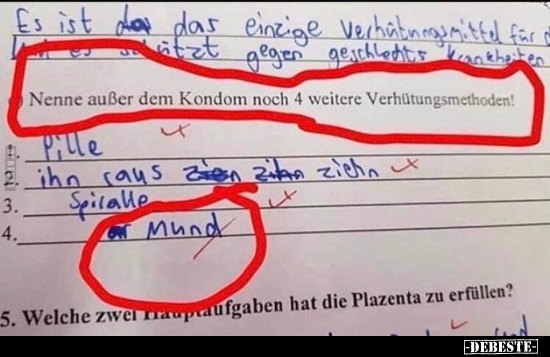 Es ist das einzige Verhütungsmittel für
es schützt gegen geschlechts krankheiten
Nenne außer dem Kondom noch 4 weitere Verhütungsmethoden!
Pille
ihn raus ziehn
3. Spiralle
4. Mund
5. Welche zwei Hauptaufgaben hat die Plazenta zu erfüllen?
und
-DEBESTE-